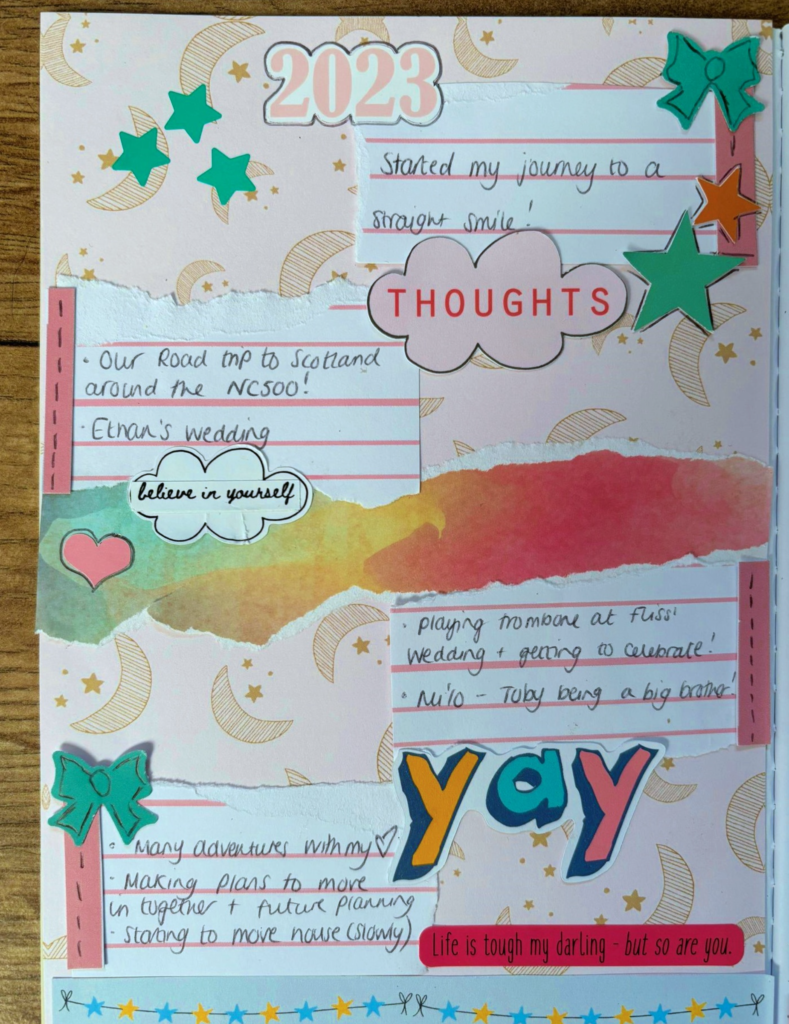 2023
Started my journey to a
straight smile!
THOUGHTS
· Our Road trip to Scotland
around the NC500!
· Ethan's wedding
believe in yourself
· Playing trombone at Fliss'
wedding + getting to celebrate!
· Milo - Toby being a big brother!
yay
· Many adventures with my ♡
· Making plans to move
in together + future planning
· Starting to move house (slowly)
Life is tough my darling - but so are you.